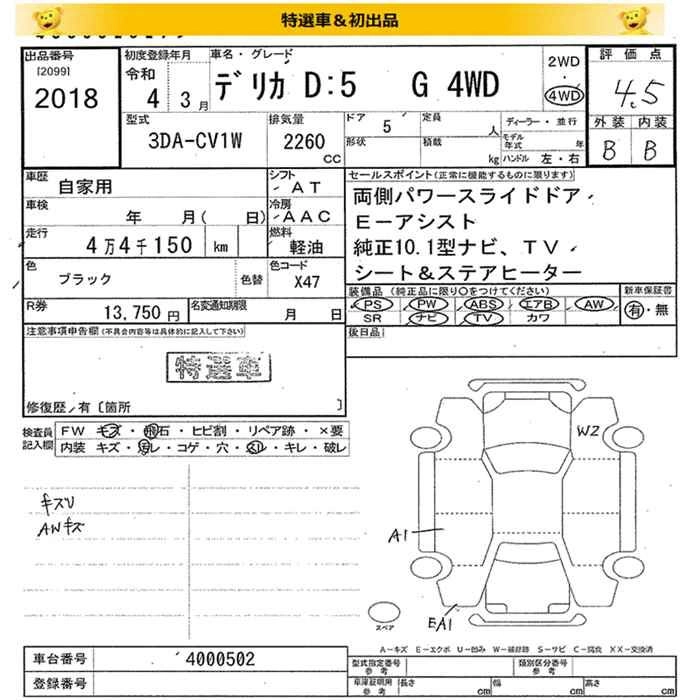 特選車＆初出品
出品番号
[2099]
2018
初度登録年月
令和
4 3月
車名・グレード
デリカ D:5 G 4WD
2WD
・
4WD
評価点
4.5
外装 内装
B B
型式
3DA-CV1W
排気量
2260
CC
ドア 5
形状
定員 人
積載 kg
ディーラー・並行
モデル年式 年
ハンドル 左・右
車歴
自家用
シフト
AT
車検
年 月( 日)
冷房
AAC
走行
4万4千150 km
燃料
軽油
色
ブラック
色替
色コード
X47
R券
13,750円
名変通知期限
月 日
セールスポイント(正常に機能するものに限ります)
両側パワースライドドア
E－アシスト
純正10.1型ナビ、TV
シート＆ステアヒーター
装備品(純正品に限り○をつけてください)
PS PW ABS エアB AW
SR ナビ TV カワ
新車保証書
有・無
後日品
注意事項申告欄(不具合内容等は具体的に記入して下さい)
特選車
修復歴／有〔箇所 〕
検査員記入欄
FW キズ・飛石・ヒビ割・リペア跡・×要
内装 キズ・汚レ・コゲ・穴・スレ・キレ・破レ
キズU
AWキズ
W2
A1
EA1
スペア
A－キズ E－エクボ U－凹み W－補修跡 S－サビ C－腐食 XX－交換済
車台番号 4000502
登録番号
型式指定番号
参考
類別区分番号
参考
車庫証明用
参考
長さ cm 幅 cm 高さ cm